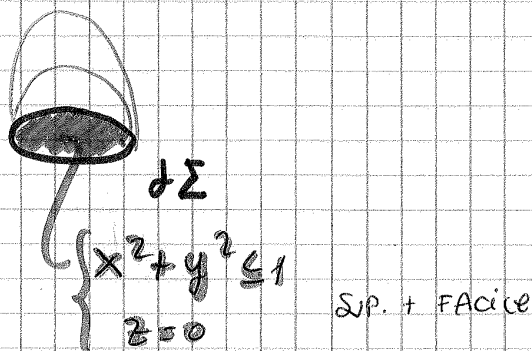 ∂Σ
x² + y² ≤ 1
z = 0
SUP. + FACILE